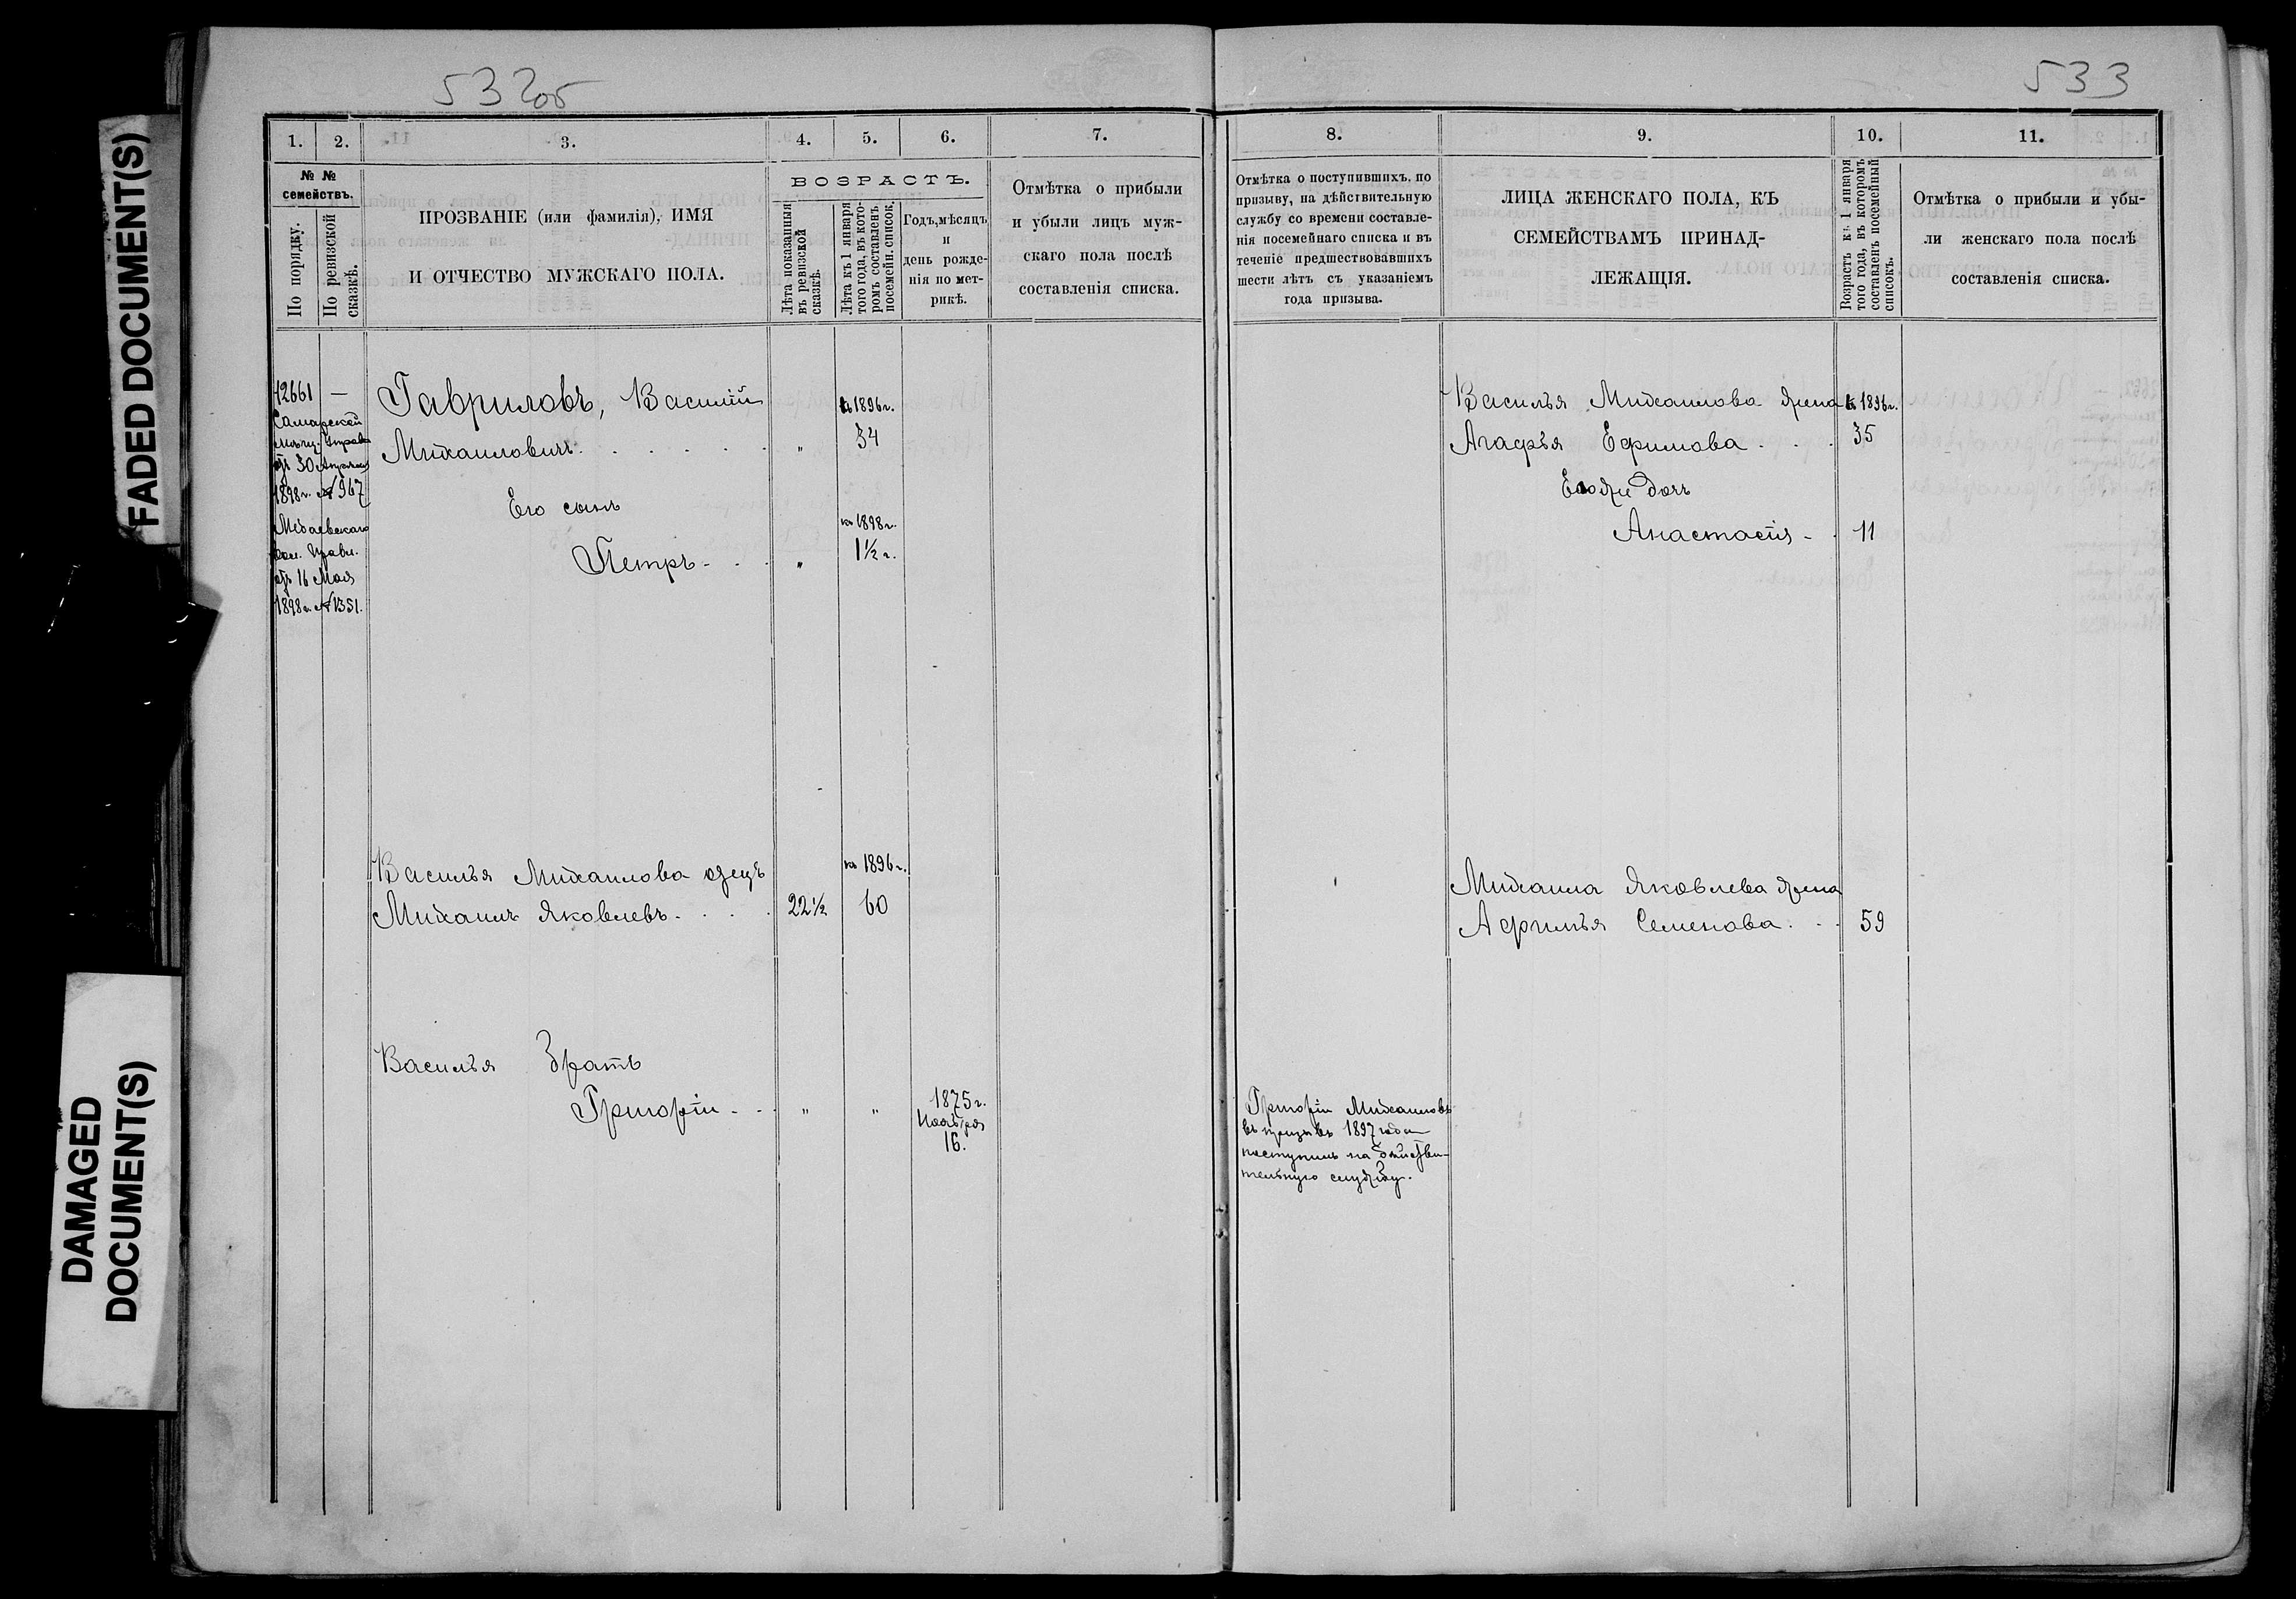 532об
533
FADED DOCUMENT(S)
DAMAGED
DOCUMENT(S)
1. 2. 3. 4. 5. 6. 7.
№ №
семействъ.
По порядку.
По ревизской
сказкѣ.
ПРОЗВАНІЕ (или фамилія), ИМЯ
И ОТЧЕСТВО МУЖСКАГО ПОЛА.
ВОЗРАСТЪ.
Лѣта показанныя
въ ревизской
сказкѣ.
Лѣта къ 1 января
того года, въ кото-
ромъ составленъ
посемейн. список.
Годъ, мѣсяцъ
и
день рожде-
нія по мет-
рикѣ.
Отмѣтка о прибыли
и убыли лицъ муж-
скаго пола послѣ
составленія списка.
12661 —
Самарской
мѣщ. Управы
отъ 30 Апрѣля
1898 г. № 967
вол. Правл.
отъ 16 Мая
1898 г. № 1351.
Гавриловъ, Василій
Михаиловичъ . . . . . . „
къ 1896 г.
34
Его сынъ
Петръ - . . „
къ 1898 г.
1½ г.
Василья Михаилова отецъ
Михаилъ Яковлевъ . . . . 22½
къ 1896 г.
60
Василья братъ
Григорій - . . „ „
1875 г.
Ноября
16.
8. 9. 10. 11.
Отмѣтка о поступившихъ, по
призыву, на дѣйствительную
службу со времени составле-
нія посемейнаго списка и въ
теченіе предшествовавшихъ
шести лѣтъ съ указаніемъ
года призыва.
ЛИЦА ЖЕНСКАГО ПОЛА, КЪ
СЕМЕЙСТВАМЪ ПРИНАД-
ЛЕЖАЩІЯ.
Возрастъ къ 1 января
того года, въ которомъ
составленъ посемейный
списокъ.
Отмѣтка о прибыли и убы-
ли женскаго пола послѣ
составленія списка.
Василья Михаилова жена къ 1896 г.
Агафья Ефимова . . . 35
Его же дочь
Анастасія - . 11
Михаила Яковлева жена
Афимья Семенова . . . 59
Григорій Михаиловъ
въ призывъ 1897 года
поступилъ на дѣйстви-
тельную службу.